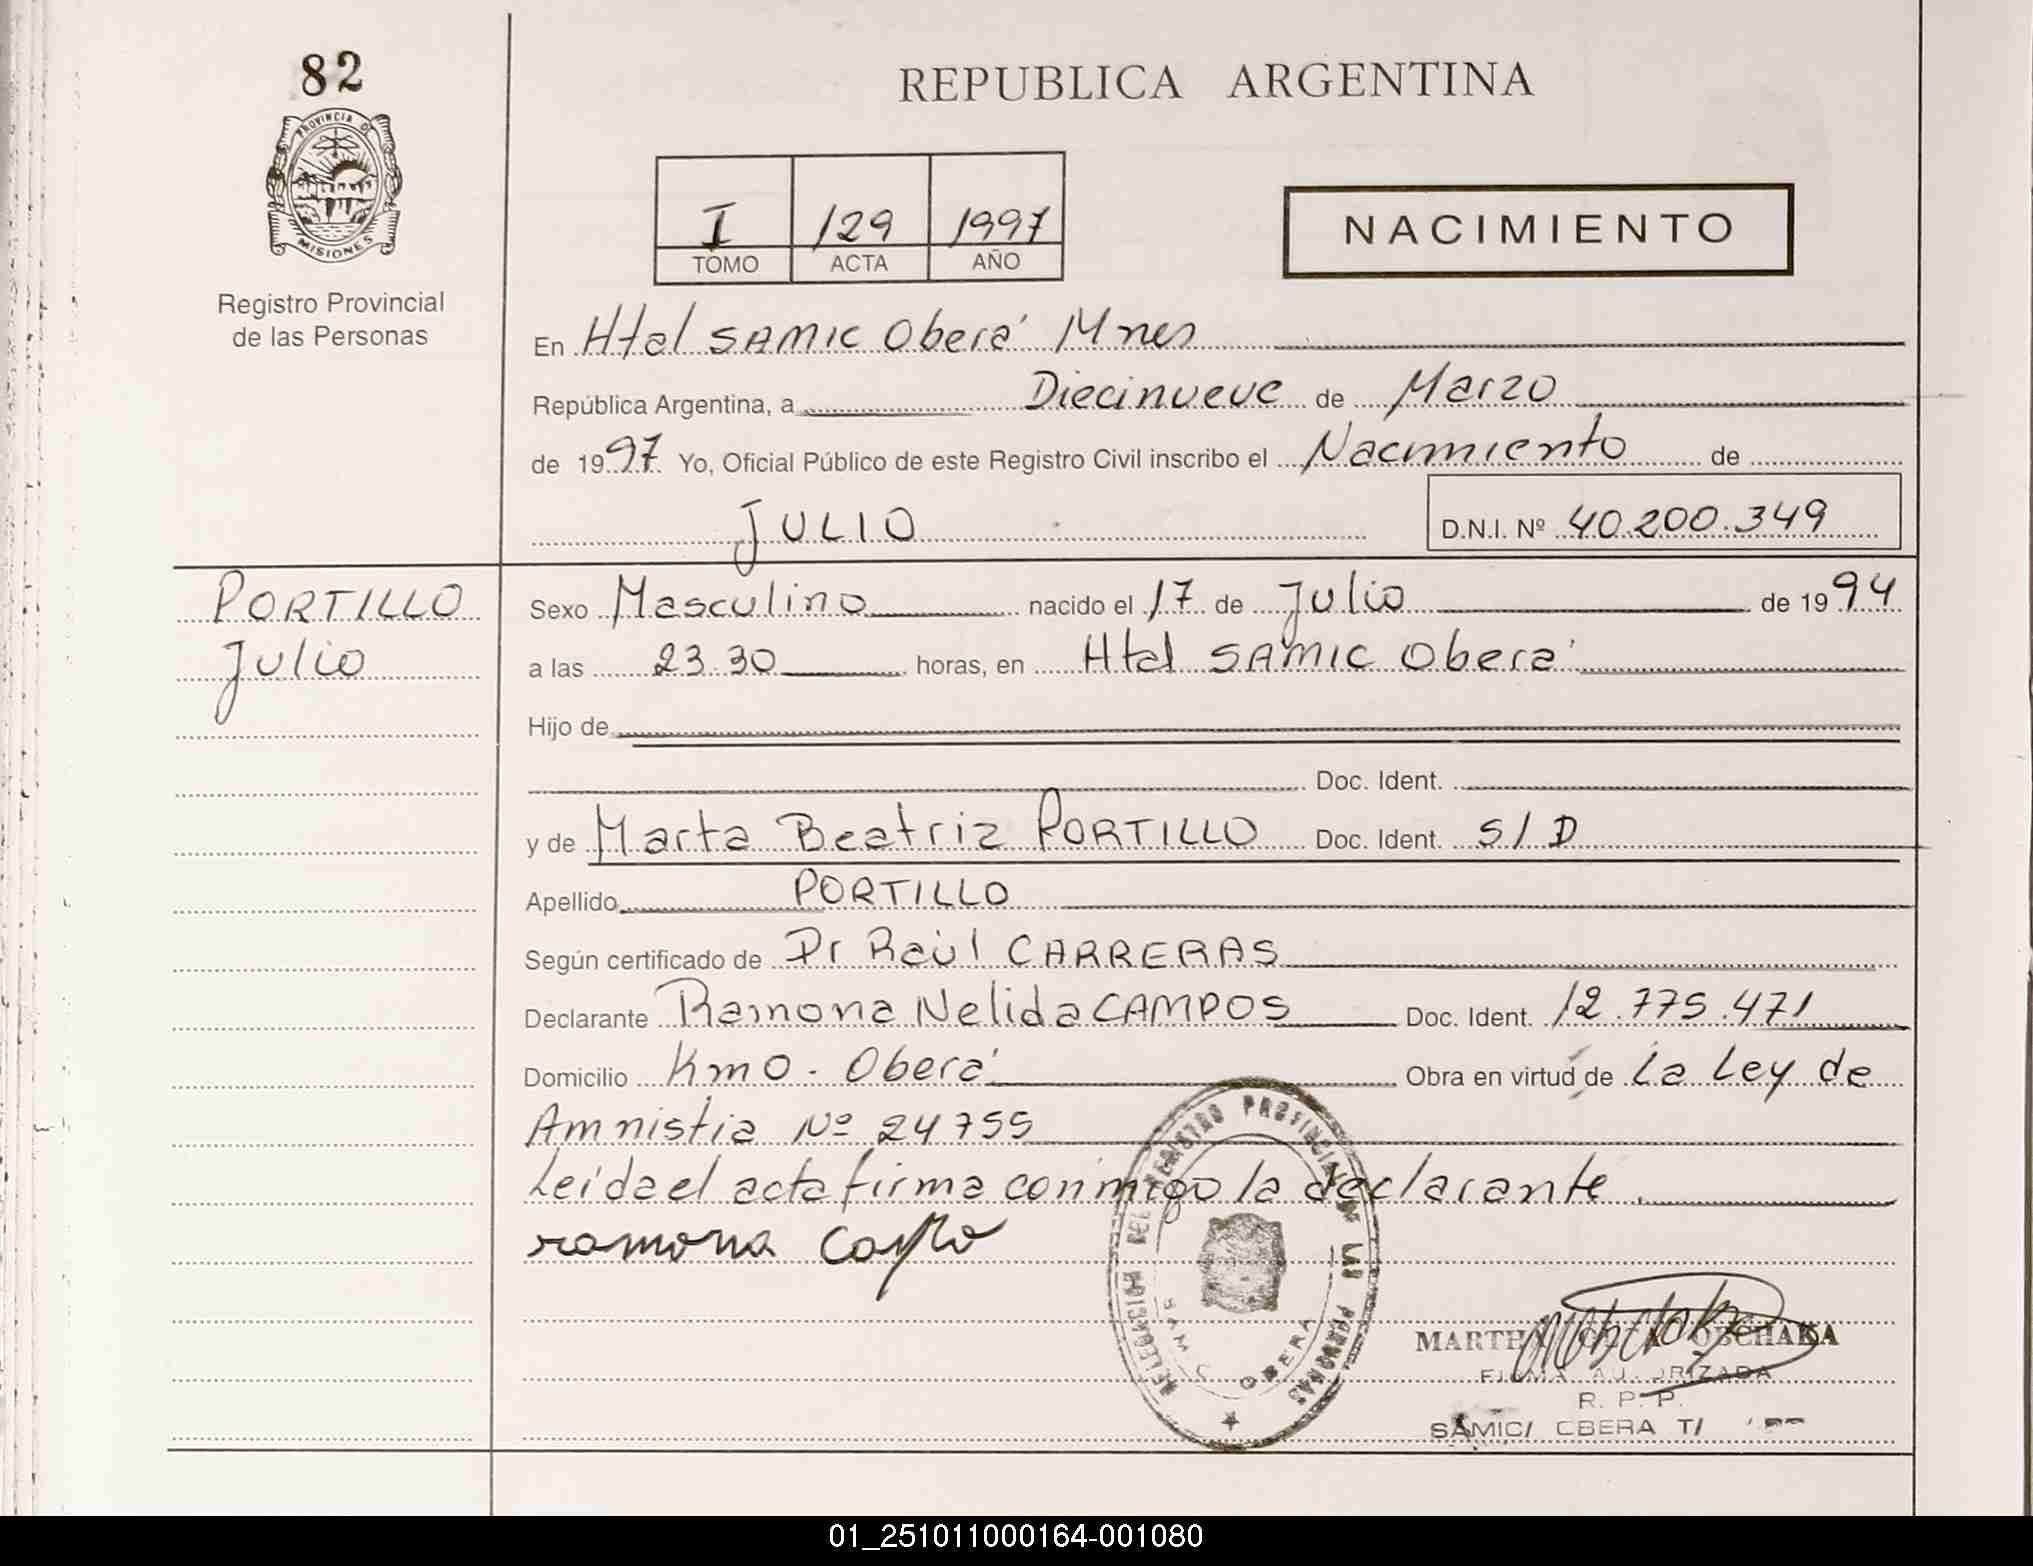 82
PROVINCIA DE
MISIONES
Registro Provincial
de las Personas
REPUBLICA ARGENTINA
I 129 1997
TOMO ACTA AÑO
NACIMIENTO
En Htal SAMIC Oberá Mnes
República Argentina, a Diecinueve de Marzo
de 1997 Yo, Oficial Público de este Registro Civil inscribo el Nacimiento de
JULIO D.N.I. Nº 40.200.349
PORTILLO
Julio
Sexo Masculino nacido el 17 de Julio de 1994
a las 23.30 horas, en Htal SAMIC Oberá
Hijo de
Doc. Ident.
y de Marta Beatriz PORTILLO Doc. Ident. S/D
Apellido PORTILLO
Según certificado de Dr Raúl CARRERAS
Declarante Ramona Nelida CAMPOS Doc. Ident. 12.775.471
Domicilio Km 0 - Oberá Obra en virtud de La Ley de
Amnistia Nº 24755
Leída el acta firma conmigo la declarante.
ramona
DELEGACION DEL REGISTRO PROVINCIAL DE LAS PERSONAS
SAMIC OBERA
MARTHA
FIRMA AUTORIZADA
R. P. P.
SAMIC/ OBERA
01_251011000164-001080